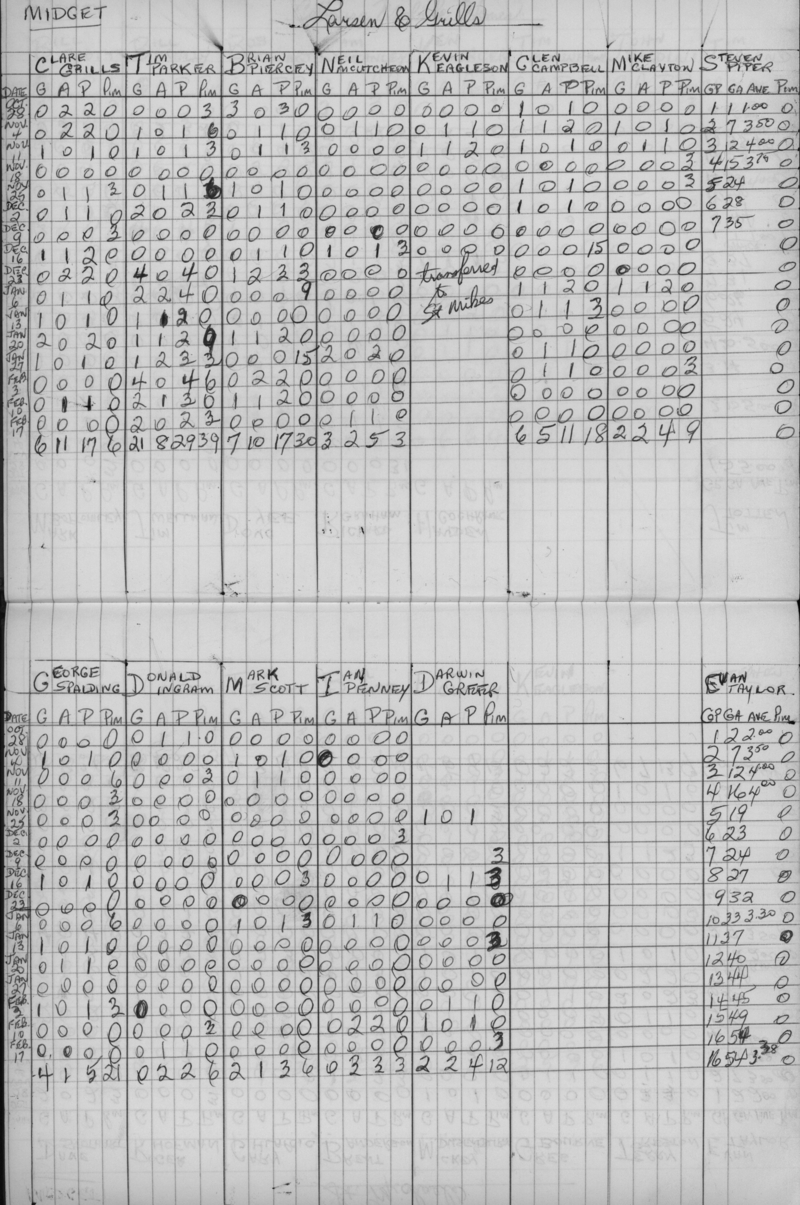 MIDGET Larsen & Grills
CLARE GRILLS TIM PARKER BRIAN PIERCEY NEIL McCUTCHEON KEVIN EAGLESON GLEN CAMPBELL MIKE CLAYTON STEVEN PIPER
DATE G A P Pim G A P Pim G A P Pim G A P Pim G A P Pim G A P Pim G A P Pim GP GA AVE Pim
OCT 28 0 2 2 0 0 0 0 3 3 0 3 0 0 0 0 0 0 0 0 0 1 0 1 0 0 0 0 0 1 1 1.00 0
NOV 4 0 2 2 0 1 0 1 6 0 1 1 0 0 1 1 0 0 1 1 0 1 1 2 0 1 0 1 0 2 7 3.50 0
NOV 11 1 0 1 0 1 0 1 3 0 1 1 3 0 0 0 0 1 1 2 0 1 0 1 0 0 1 1 0 3 12 4.00 0
NOV 18 0 0 0 0 0 0 0 0 0 0 0 0 0 0 0 0 0 0 0 0 0 0 0 0 0 0 0 3 4 15 3.75 0
NOV 25 0 1 1 3 0 1 1 1 0 1 0 0 0 0 0 0 0 0 0 1 0 1 0 0 0 0 3 5 24 0
DEC 2 0 1 1 0 2 0 2 3 0 1 1 0 0 0 0 0 0 0 0 0 1 0 1 0 0 0 0 0 6 28 0
DEC 9 0 0 0 3 0 0 0 0 0 0 0 0 0 0 0 0 0 0 0 0 0 0 0 0 0 0 0 0 7 35 0
DEC 16 1 1 2 0 0 0 0 0 0 1 1 0 1 0 1 3 0 0 0 0 0 0 0 15 0 0 0 0 0
DEC 23 0 2 2 0 4 0 4 0 1 2 3 3 0 0 0 0 transferred 0 0 0 0 0 0 0 0 0
JAN 6 0 1 1 0 2 2 4 0 0 0 0 9 0 0 0 0 to 1 1 2 0 1 1 2 0 0
JAN 13 1 0 1 0 1 1 2 0 0 0 0 0 0 0 0 0 St Mikes 0 1 1 3 0 0 0 0 0
JAN 20 2 0 2 0 1 1 2 0 1 1 2 0 0 0 0 0 0 0 0 0 0 0 0 0 0
JAN 27 1 0 1 0 1 2 3 3 0 0 0 15 2 0 2 0 0 1 1 0 0 0 0 0 0
FEB 3 0 0 0 0 4 0 4 6 0 2 2 0 0 0 0 0 0 1 1 0 0 0 0 3 0
FEB 10 0 1 1 0 2 1 3 0 1 1 2 0 0 0 0 0 0 0 0 0 0 0 0 0 0
FEB 17 0 0 0 0 2 0 2 3 0 0 0 0 0 1 1 0 0 0 0 0 0 0 0 0 0
6 11 17 6 21 8 29 39 7 10 17 30 3 2 5 3 6 5 11 18 2 2 4 9 0
GEORGE SPALDING DONALD INGRAM MARK SCOTT IAN PENNEY DARWIN GREER EVAN TAYLOR
DATE G A P Pim G A P Pim G A P Pim G A P Pim G A P Pim GP GA AVE Pim
OCT 28 0 0 0 0 0 1 1 0 0 0 0 0 0 0 0 0 1 2 2.00 0
NOV 4 1 0 1 0 0 0 0 0 1 0 1 0 0 0 0 0 2 7 3.50 0
NOV 11 0 0 0 6 0 0 0 3 0 1 1 0 0 0 0 0 3 12 4.00 0
NOV 18 0 0 0 3 0 0 0 0 0 0 0 0 0 0 0 0 4 16 4.00 0
NOV 25 0 0 0 3 0 0 0 0 0 0 0 0 0 0 0 0 1 0 1 5 19 0
DEC 2 0 0 0 0 0 0 0 0 0 0 0 0 0 0 0 3 6 23 0
DEC 9 0 0 0 0 0 0 0 0 0 0 0 0 0 0 0 0 3 7 24 0
DEC 16 1 0 1 0 0 0 0 0 0 0 0 3 0 0 0 0 0 1 1 3 8 27 0
DEC 23 0 0 0 0 0 0 0 0 0 0 0 0 0 0 0 0 0 0 0 0 9 32 0
JAN 6 0 0 0 6 0 0 0 0 1 0 1 3 0 1 1 0 0 0 0 0 10 33 3.30 0
JAN 13 1 0 1 0 0 0 0 0 0 0 0 0 0 0 0 0 0 0 0 3 11 37 0
JAN 20 0 1 1 0 0 0 0 0 0 0 0 0 0 0 0 0 0 0 0 0 12 40 0
JAN 27 0 0 0 0 0 0 0 0 0 0 0 0 0 0 0 0 0 0 0 0 13 44 0
FEB 3 1 0 1 3 0 0 0 0 0 0 0 0 0 0 0 0 0 1 1 0 14 45 0
FEB 10 0 0 0 0 0 0 0 3 0 0 0 0 0 2 2 0 1 0 1 0 15 49 0
FEB 17 0 0 0 0 0 1 1 0 0 0 0 0 0 0 0 0 0 0 0 3 16 54 0
4 1 5 21 0 2 2 6 2 1 3 6 0 3 3 3 2 2 4 12 16 54 3.38 0